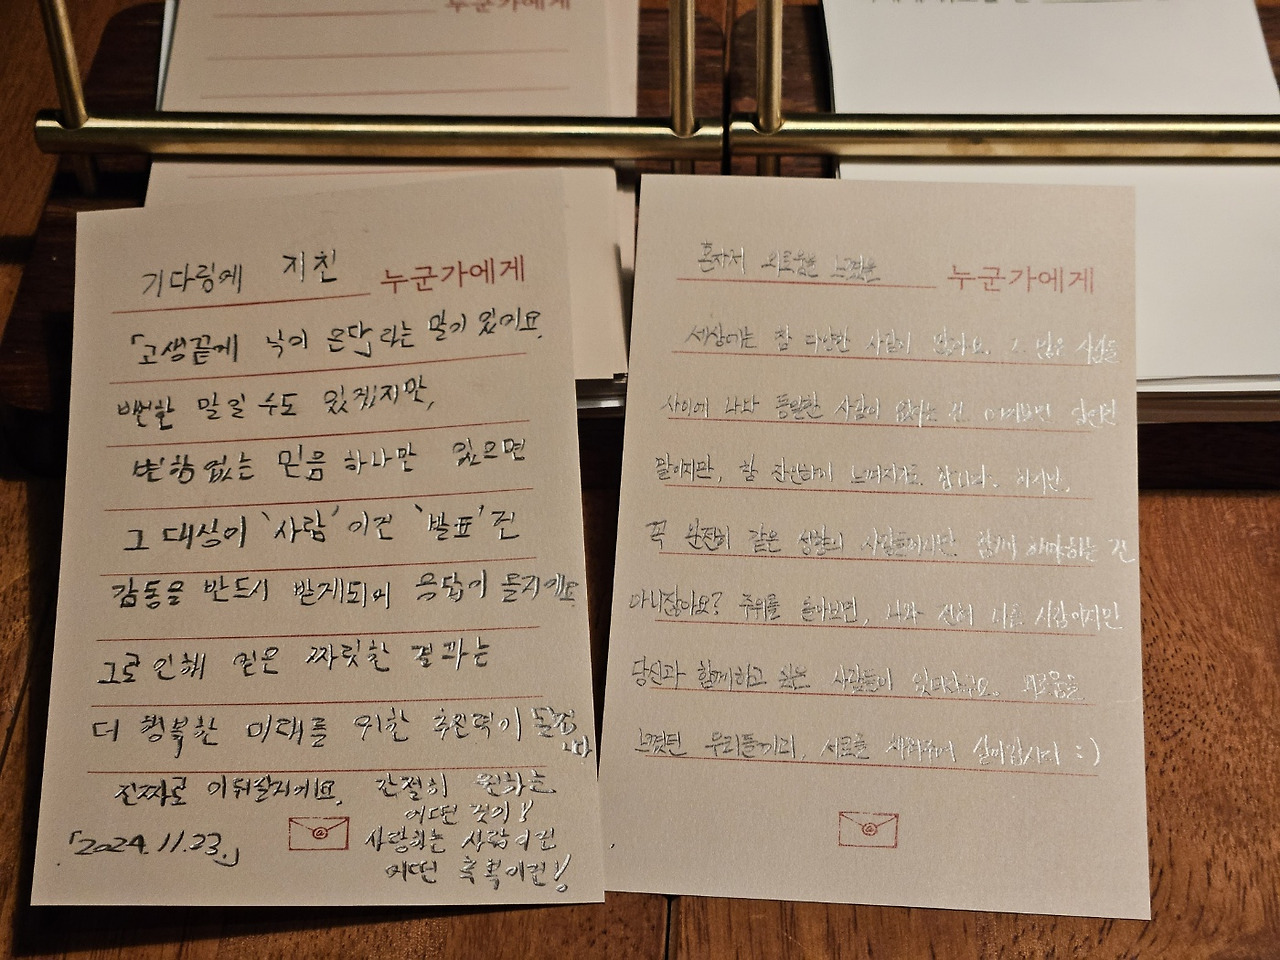 누군가에게
기다림에 지친 누군가에게
「고생끝에 낙이 온다」라는 말이 있어요.
뻔한 말일 수도 있겠지만,
변함없는 믿음 하나만 있으면
그 대상이 '사람'이건 '발표'건
감동을 반드시 받게되어 응답이 올지에요
그로인해 얻은 짜릿한 결과는
더 행복한 미래를 위한 추진력이 됩
니다
진짜로 이뤄질지에요. 간절히 원하는
어떤 것이!
사랑하는 사람이건
어떤 축복이건!
「2024.11.23.」
혼자서 외로움을 느꼈을 누군가에게
세상에는 참 다양한 사람이 많아요. 그 많은 사람들
사이에 나와 동일한 사람이 없다는 건 어찌보면 당연한
말이지만, 참 잔잔하게 느껴지기도 합니다. 하지만,
꼭 완전히 같은 성향의 사람들이서만 함께 해야하는 건
아니잖아요? 주위를 돌아보면, 나와 전혀 다른 사람이지만
당신과 함께하고 싶은 사람들이 있더라구요. 외로움을
느꼈던 우리들끼리, 서로를 채워주며 살아갑시다 :)